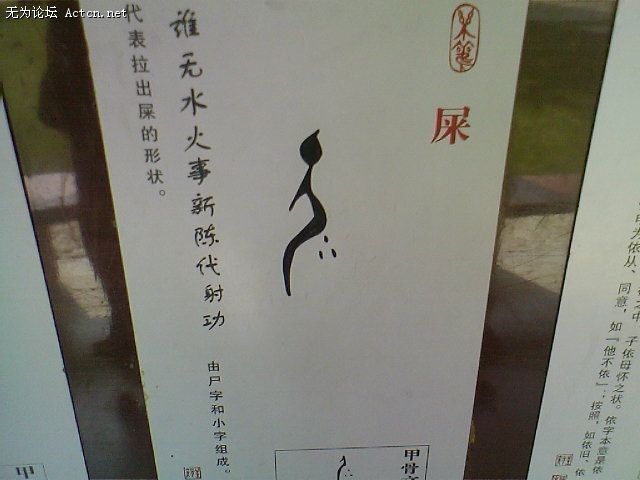 无为论坛 Actcn.net
屎
由尸字和小字组成。
谁无水火事新陈代射功
代表拉出屎的形状。
甲骨文
之中，子依母怀之状。依字本意是依
为依从、同意，如『他不依』；按照，如依旧、依
甲